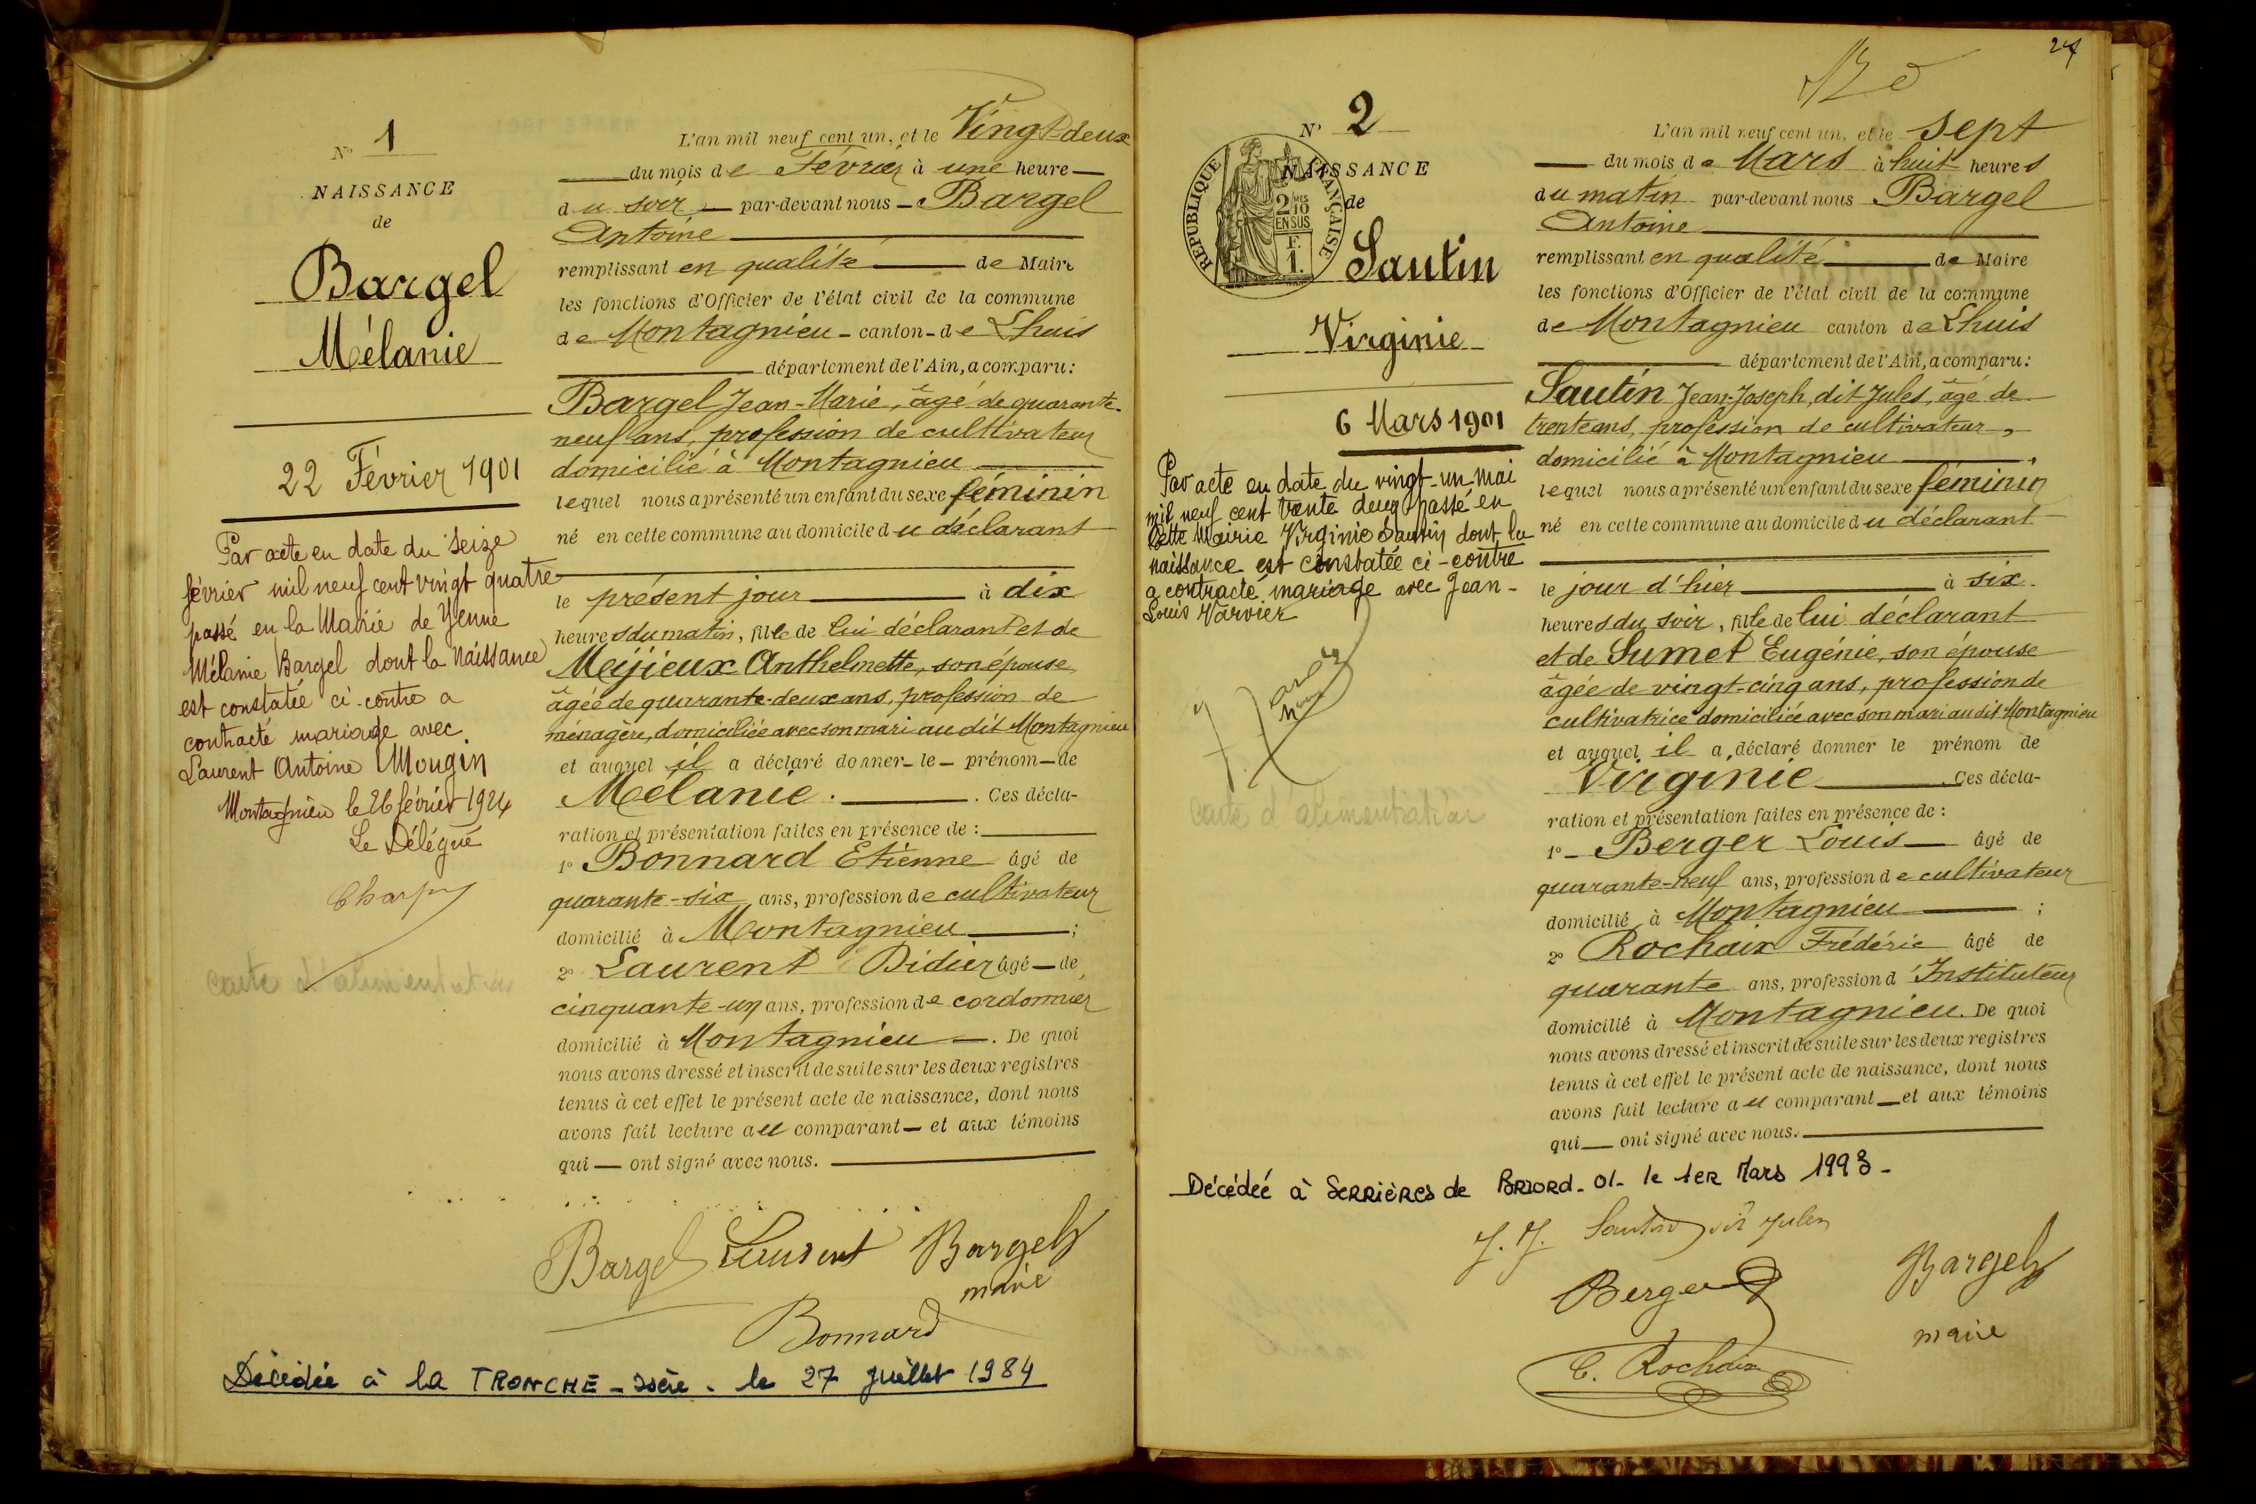 N° 1
NAISSANCE
de
Bargel
Mélanie
22 Février 1901
Par acte en date du seize
février mil neuf cent vingt quatre
passé en la Mairie de Yenne
Mélanie Bargel dont la naissance
est constatée ci-contre a
contracté mariage avec
Laurent Antoine Mougin
Montagnieu le 26 février 1924
Le Délégué
Charpy
carte d'alimentation
L'an mil neuf cent un, et le Vingt-deux
du mois de Février à une heure
du soir par-devant nous Bargel
Antoine
remplissant en qualité de Maire
les fonctions d'Officier de l'état civil de la commune
de Montagnieu - canton - de Lhuis
département de l'Ain, a comparu:
Bargel Jean-Marie, âgé de quarante-
neuf ans, profession de cultivateur
domicilié à Montagnieu
lequel nous a présenté un enfant du sexe féminin
né en cette commune au domicile du déclarant
le présent jour à dix
heures du matin, fille de lui déclarant et de
Meijieux Anthelmette, son épouse
âgée de quarante-deux ans, profession de
ménagère, domiciliée avec son mari au dit Montagnieu
et auquel il a déclaré donner - le - prénom - de
Mélanie. Ces décla-
ration et présentation faites en présence de :
1° Bonnard Etienne âgé de
quarante-six ans, profession de cultivateur
domicilié à Montagnieu ;
2° Laurent Didier âgé - de
cinquante-un ans, profession de cordonnier
domicilié à Montagnieu. De quoi
nous avons dressé et inscrit de suite sur les deux registres
tenus à cet effet le présent acte de naissance, dont nous
avons fait lecture au comparant - et aux témoins
qui - ont signé avec nous.
Bargel Laurent Bargel
maire
Bonnard
Décédée à la TRONCHE - Isère - le 27 Juillet 1984
24
N° 2
RÉPUBLIQUE FRANÇAISE
2/10 EN SUS
F. 1.
NAISSANCE
de
Sautin
Virginie
6 Mars 1901
Par acte en date du vingt-un mai
mil neuf cent trente deux passé en
cette Mairie Virginie Sautin dont la
naissance est constatée ci-contre
a contracté mariage avec Jean-
Louis Varvier
carte d'alimentation
L'an mil neuf cent un, et le sept
du mois de Mars à huit heures
du matin par-devant nous Bargel
Antoine
remplissant en qualité de Maire
les fonctions d'Officier de l'état civil de la commune
de Montagnieu canton de Lhuis
département de l'Ain, a comparu:
Sautin Jean-Joseph, dit Jules, âgé de
trente ans, profession de cultivateur,
domicilié à Montagnieu,
lequel nous a présenté un enfant du sexe féminin
né en cette commune au domicile du déclarant
le jour d'hier à six
heures du soir, fille de lui déclarant
et de Sumet Eugénie, son épouse
âgée de vingt-cinq ans, profession de
cultivatrice domiciliée avec son mari au dit Montagnieu
et auquel il a déclaré donner le prénom de
Virginie. Ces décla-
ration et présentation faites en présence de :
1° - Berger Louis - âgé de
quarante-neuf ans, profession de cultivateur
domicilié à Montagnieu ;
2° Rochaix Frédéric âgé de
quarante ans, profession d'Instituteur
domicilié à Montagnieu. De quoi
nous avons dressé et inscrit de suite sur les deux registres
tenus à cet effet le présent acte de naissance, dont nous
avons fait lecture au comparant - et aux témoins
qui - ont signé avec nous.
Décédée à Serrières de Briord - 01 - le 1er Mars 1993 -
J. J. Sautin dit Jules
Berger
Bargel
maire
Rochaix